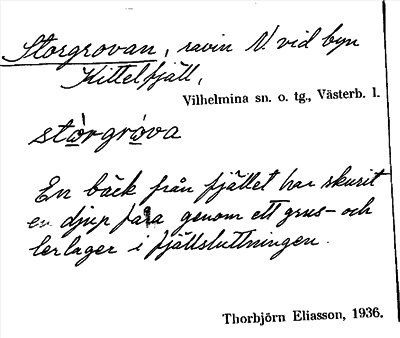 Storgrovan, ravin N. vid byn
Kittelfjäll,
Vilhelmina sn. o. tg., Västerb. l.
stòrgròva
En bäck från fjället har skurit
en djup fåra genom ett grus- och
lerlager i fjällsluttningen.
Thorbjörn Eliasson, 1936.